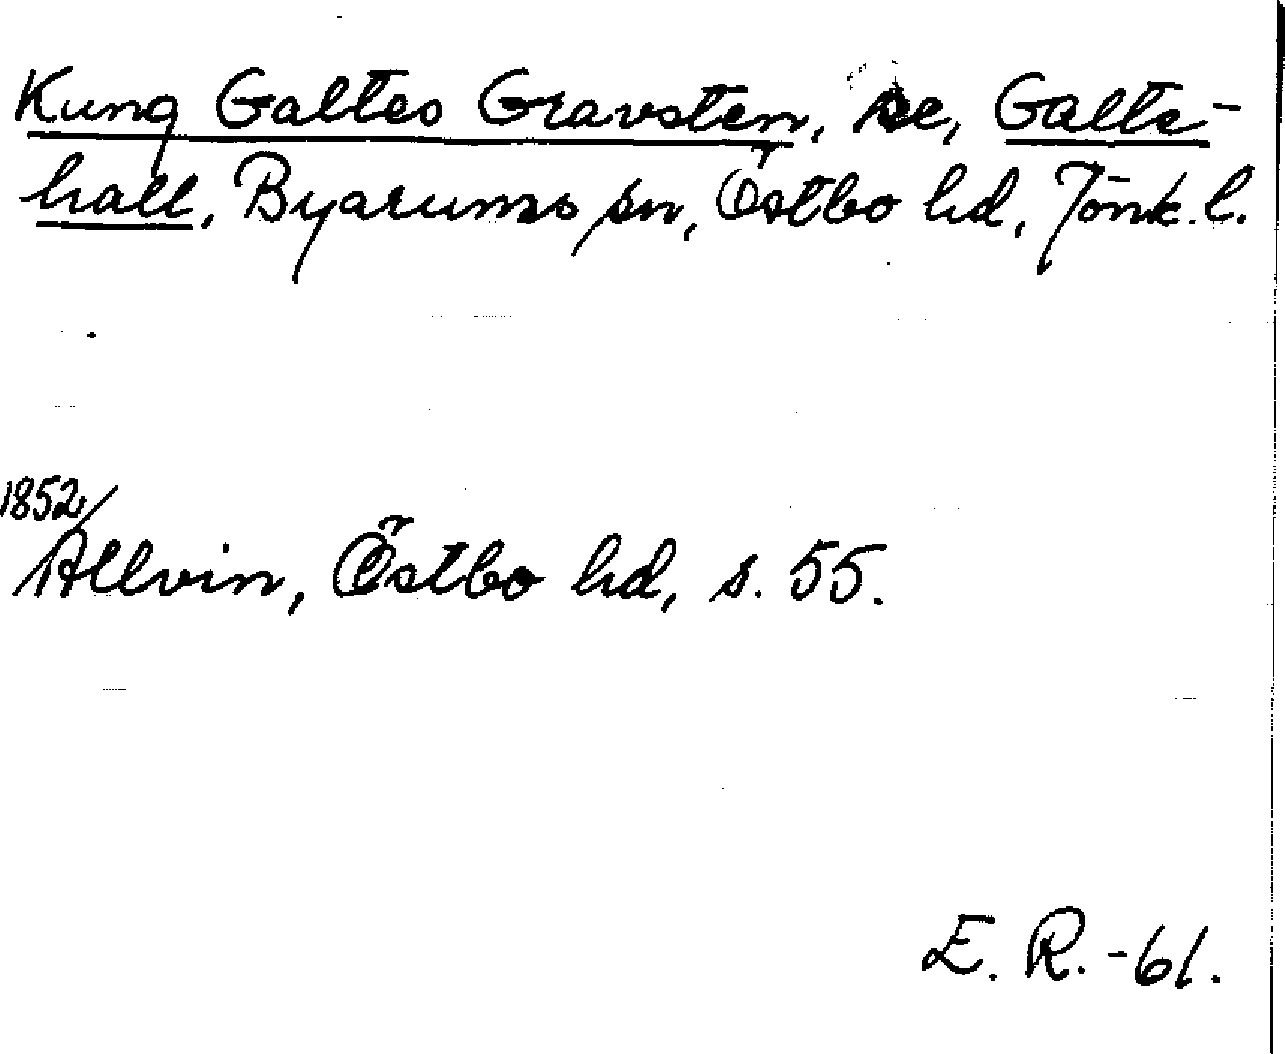 Kung Galtes Gravsten, se, Galte-
hall, Byarums sn, Östbo hd, Jönk. l.
1852/
Allvin, Östbo hd, s. 55.
E. R. -61.